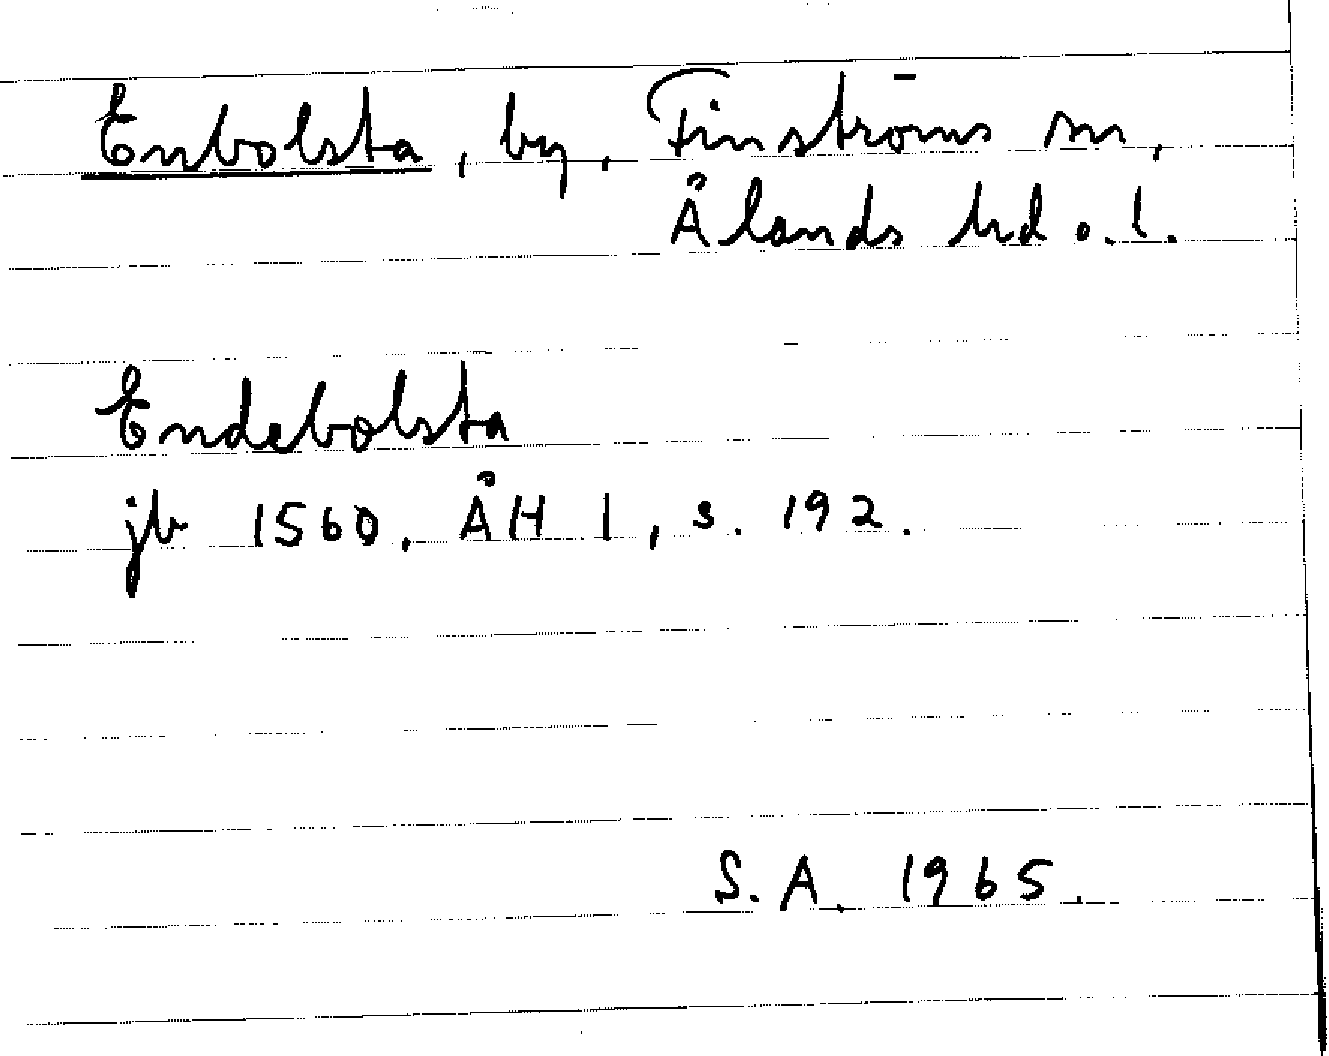 Enbolsta, by, Finströms sn,
Ålands hd o. l.
Endebolsta
jb 1560, ÅH I, s. 192.
S.A. 1965.